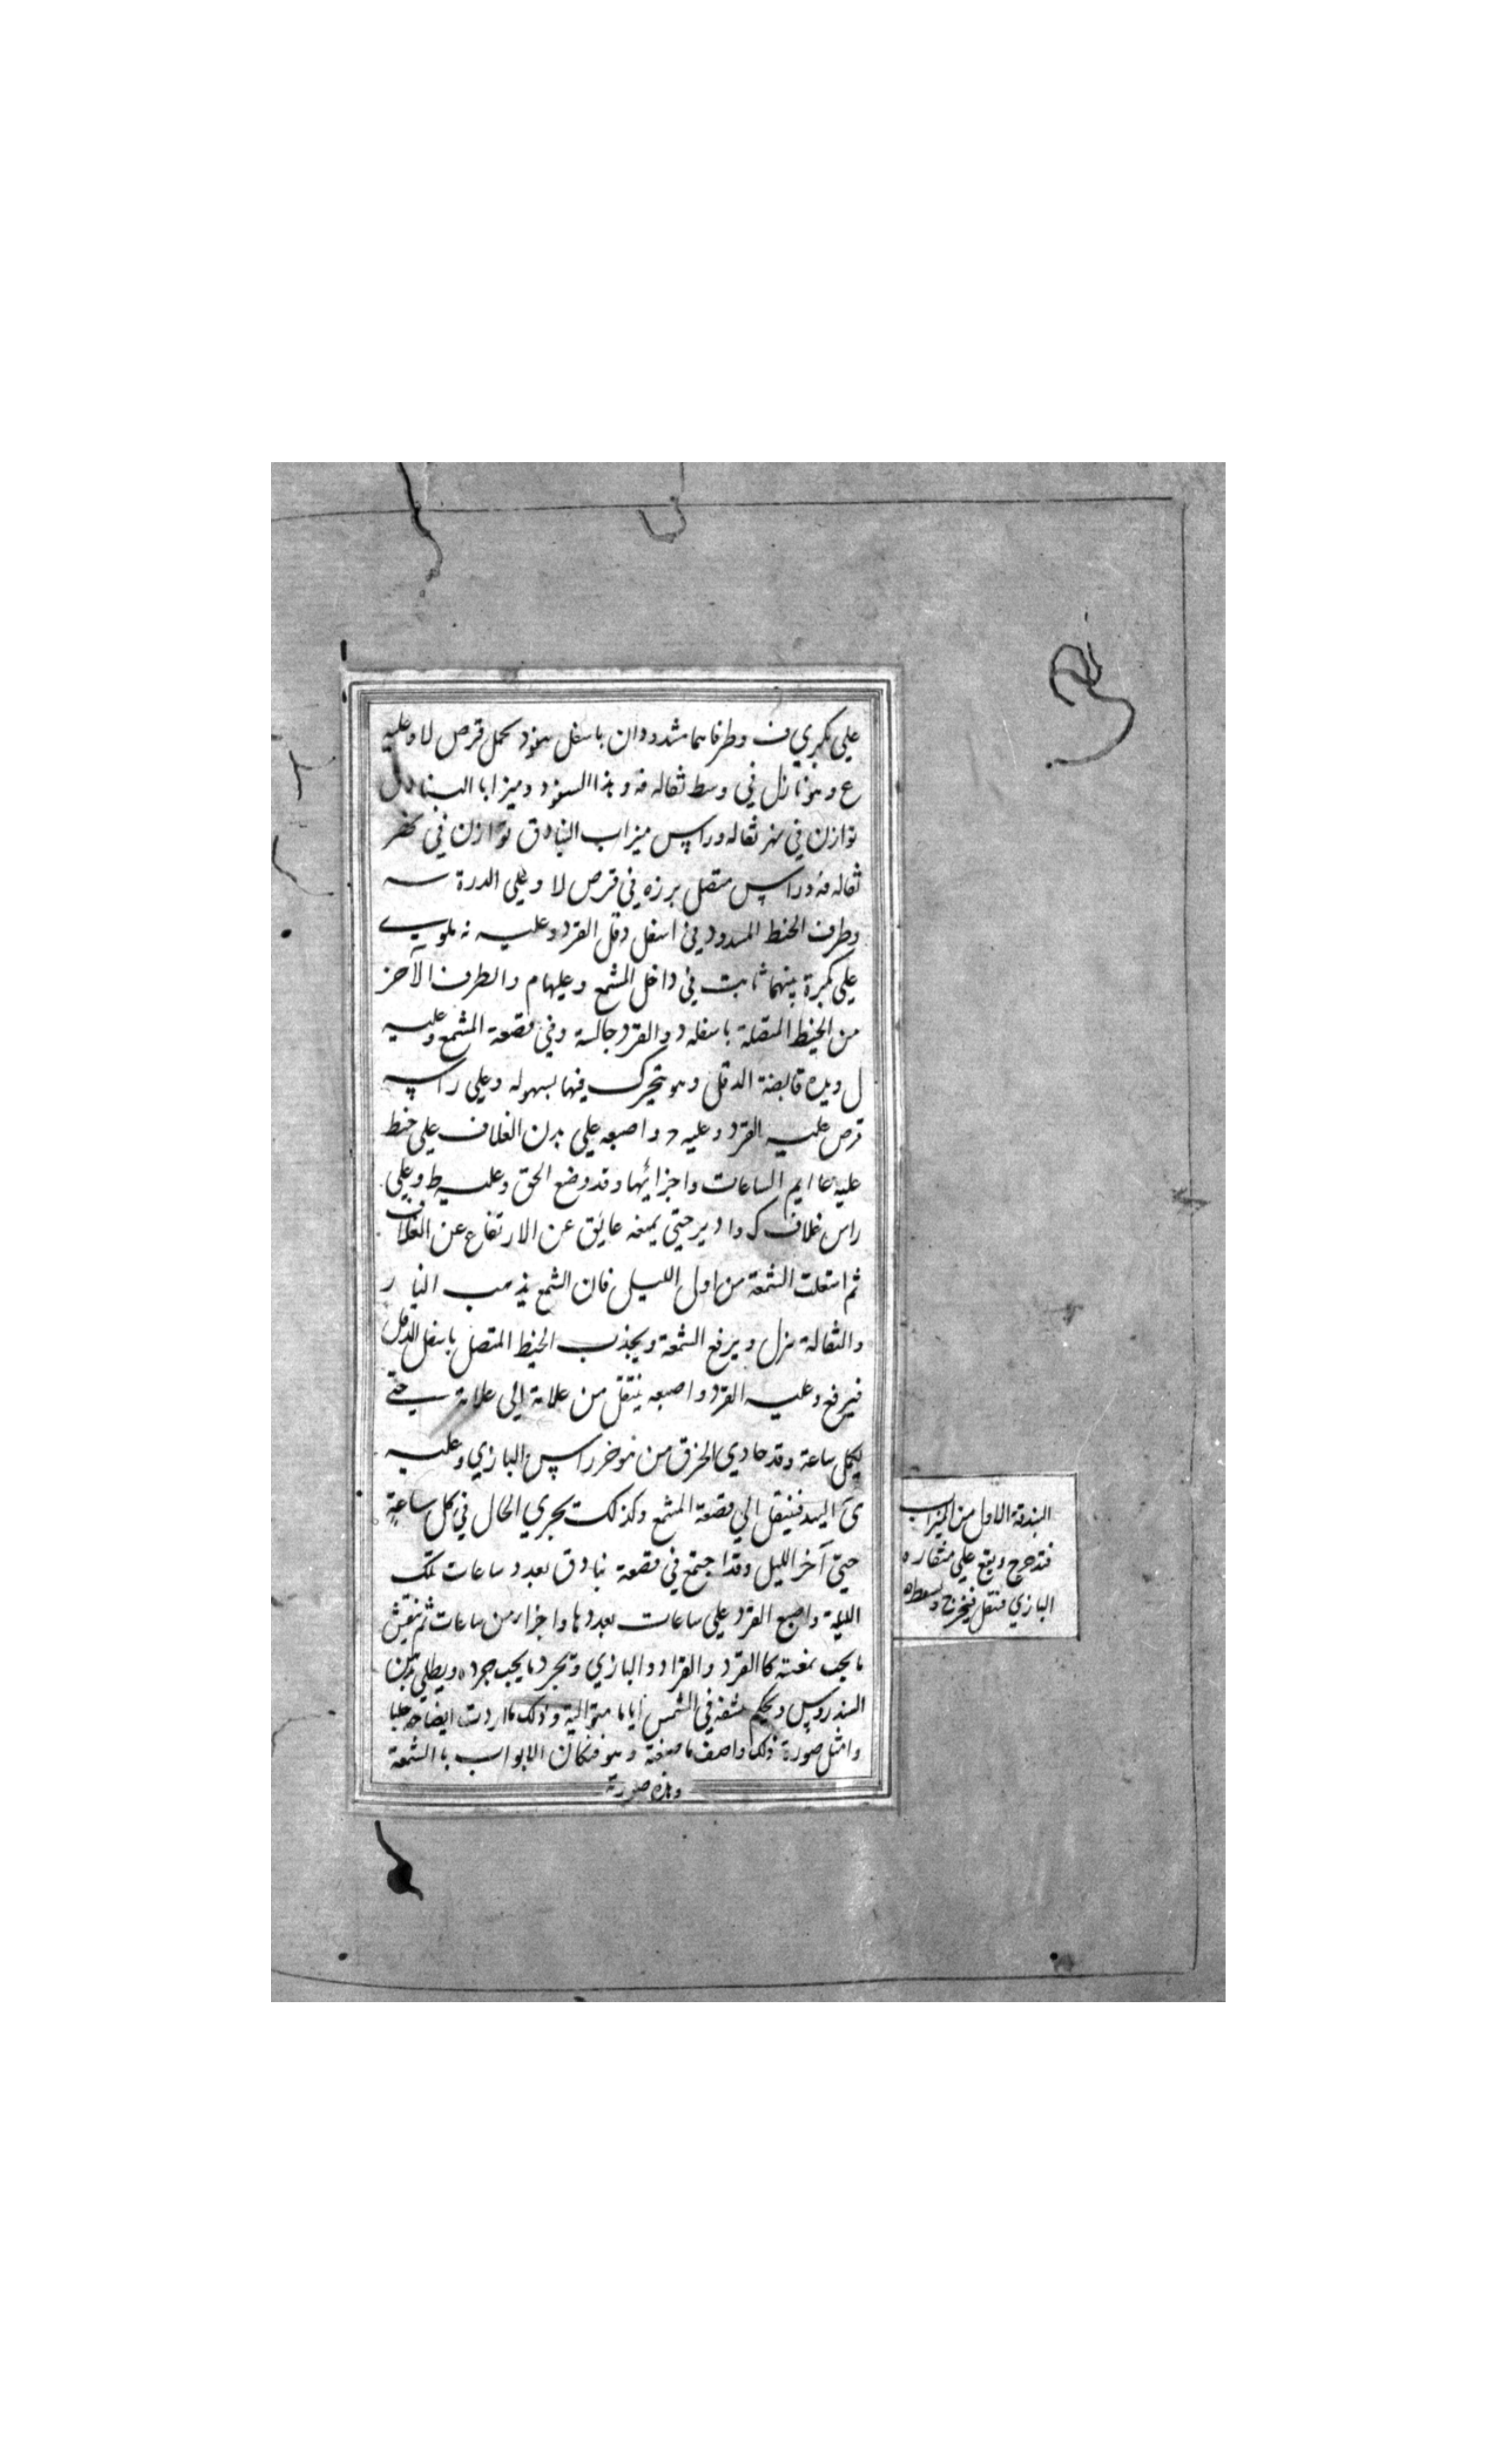 علي بكرتي ف وطرفاهما مشدودان باسفل سفود يحمل قرص لا وعليه
ع وهو نازل في وسط ثقاله فه وهذا السفود وميزابا البنادق
توازن في سفر ثقاله وراس ميزاب البنادق توازن في
ثقاله فه وراس متصل برزه في قرص لا وعلي الدرة سه
وطرف الخيط المسدود في اسفل دقل القرد وعليه نه ملوي
علي بكرة بينهما ثابت في داخل المشمع وعليها م والطرف الآخر
من الخيط المتصلة باسفله د والقرد جالسة وفي قصعة المشمع وعليه
ل ويده قابضة الدقل وهو يتحرك فيها بسهوله وعلي راسه
قرص عليه القرد وعليه د واصبعه علي بدن الغلاف علي خط
عليه علايم الساعات واجزائها وقد وضع الحق وعليه ط وعلي
راس غلاف ك وادير حتي يمنعه عايق عن الارتفاع عن الغلاف
ثم اشعلت الشمعة من اول الليل فان الشمع يذهب النار
والثقالة ينزل ويرفع الشمعة ويجذب الخيط المتصل باسفل الدقل
فيرفع وعليه القرد واصبعه ينتقل من علامة الي علامة حتي
يكمل ساعة وقد حاذي الخرق من موخر راس البازي وعليه
ي اليه فينتقل الي قصعة المشمع وكذلك يجري الحال في كل ساعة
حتي آخر الليل وقد اجتمع في قصعة بنادق بعدد ساعات تلك
الليلة واصبع القرد علي ساعات بعددها واجزاء من ساعات ثم ينقش
ما يجب نقشه كالقرد والقراد والبازي ويجرد ما يجب جرده ويطلي بدهن
السندروس ويحكم نشفه في الشمس اياما متوالية وذلك ما اردت ايضاحه جليا
وامثل صورة ذلك واصف ما صنعته وهو فنكان الابواب بالشمعة
وهذه صورته
البندقة الاول من الميزاب
فتدحرج ويقع علي منقاره
البازي فتنقل فيخرج ويسقط